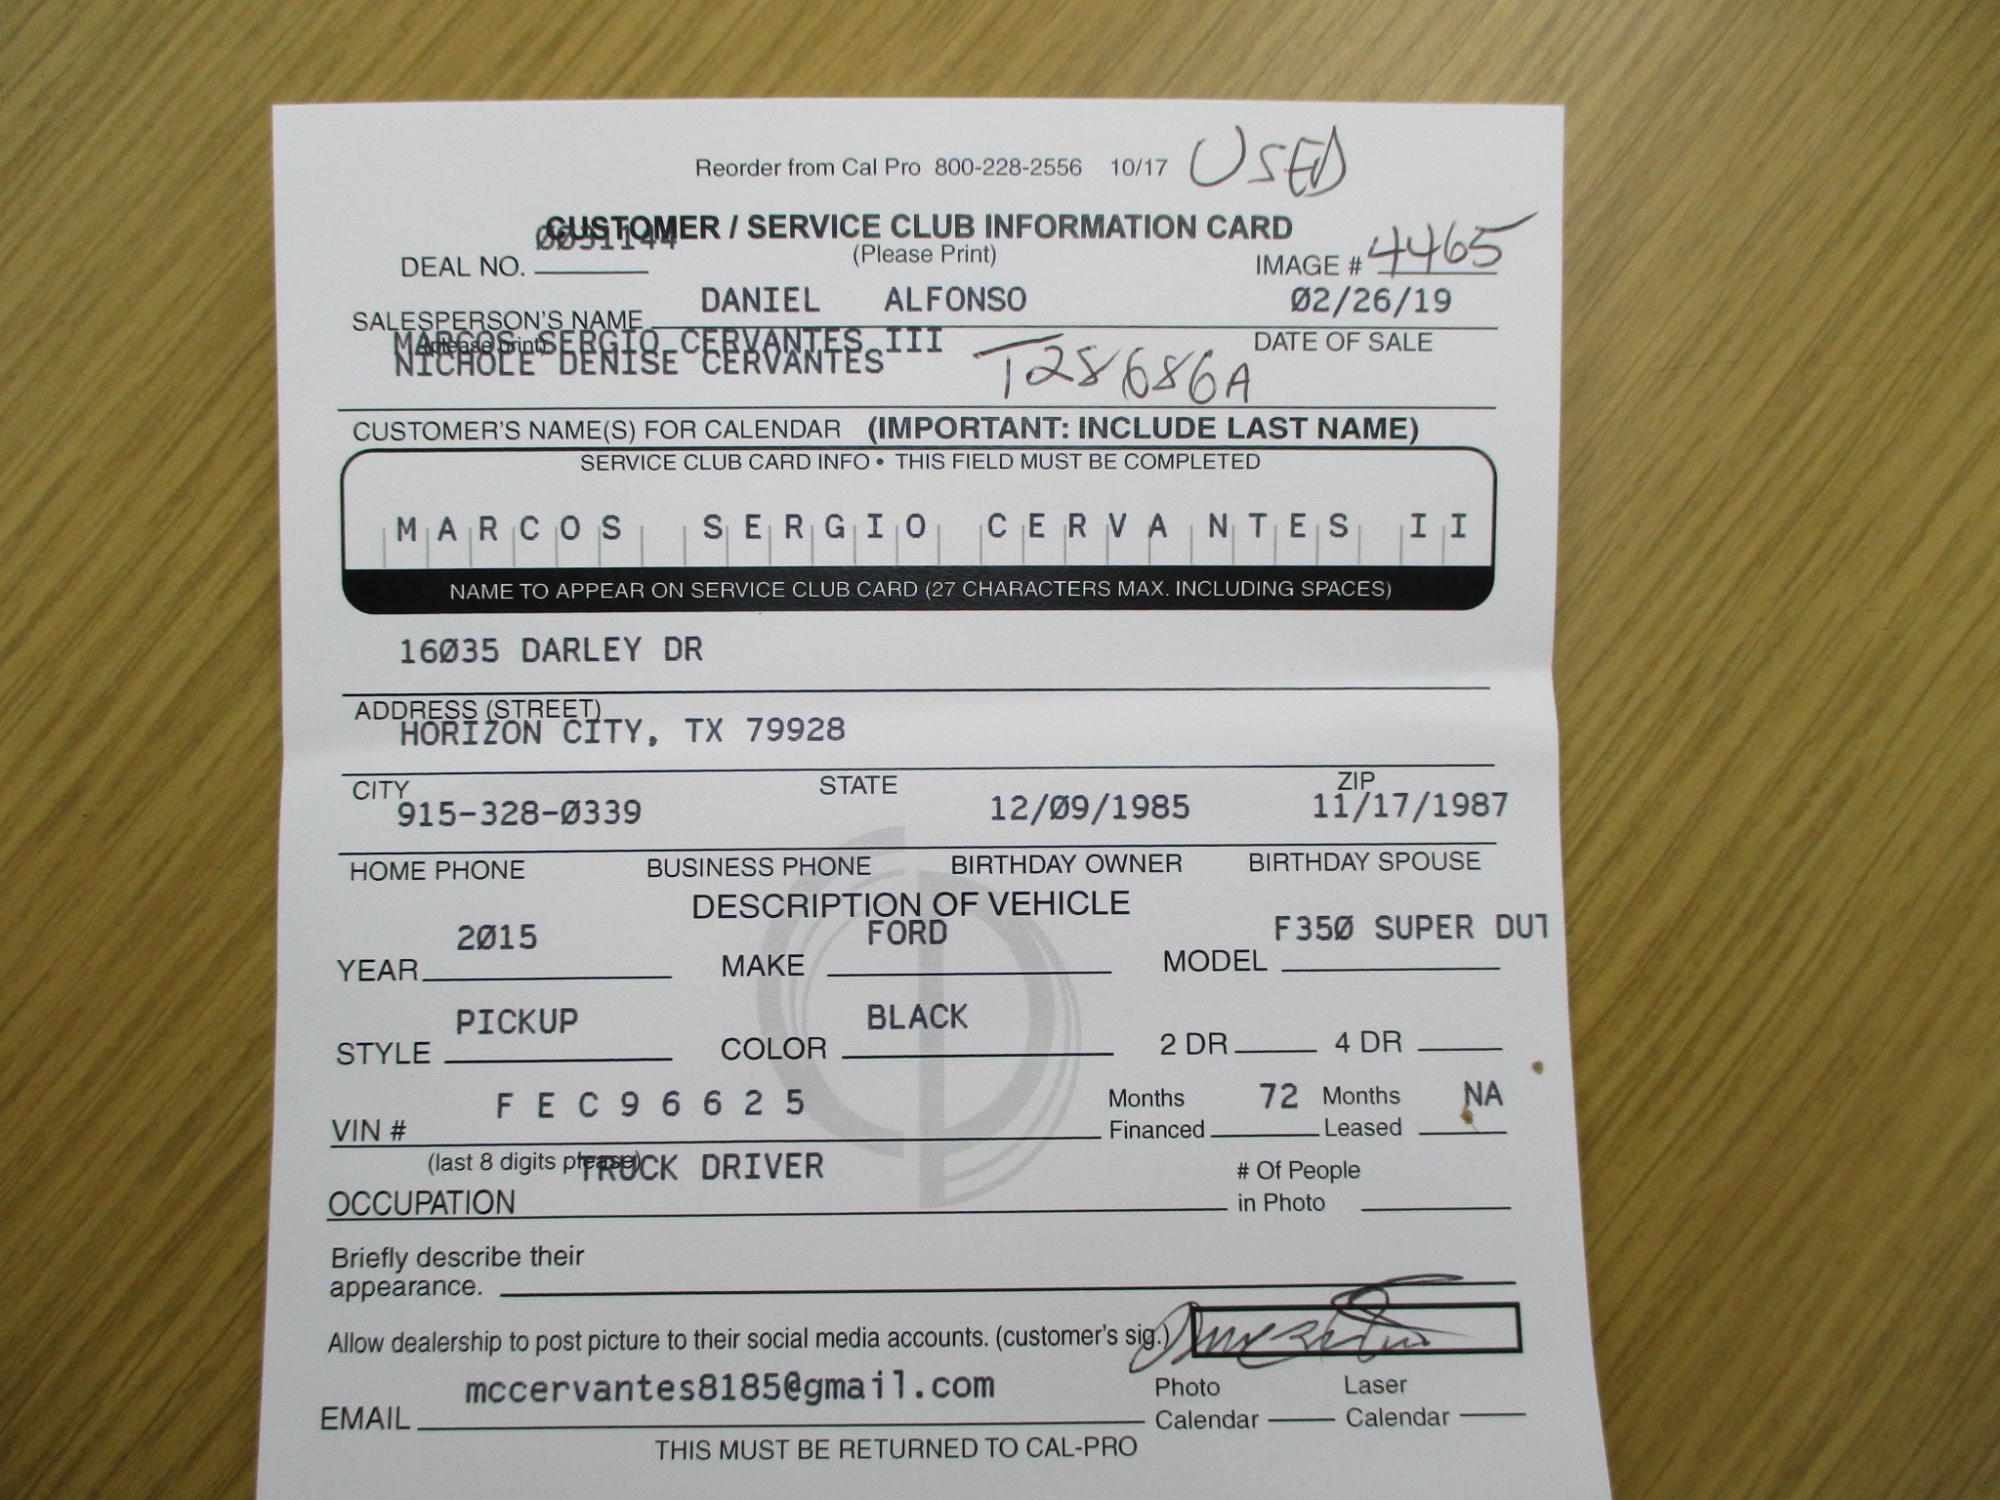 Reorder from Cal Pro 800-228-2556 10/17 USED
CUSTOMER / SERVICE CLUB INFORMATION CARD
(Please Print)
DEAL NO. 0031144
IMAGE # 4465
SALESPERSON'S NAME DANIEL ALFONSO
02/26/19
(please print)
DATE OF SALE
MARCOS SERGIO CERVANTES III
NICHOLE DENISE CERVANTES
T28686A
CUSTOMER'S NAME(S) FOR CALENDAR (IMPORTANT: INCLUDE LAST NAME)
SERVICE CLUB CARD INFO • THIS FIELD MUST BE COMPLETED
MARCOS SERGIO CERVANTES II
NAME TO APPEAR ON SERVICE CLUB CARD (27 CHARACTERS MAX. INCLUDING SPACES)
16035 DARLEY DR
ADDRESS (STREET)
HORIZON CITY, TX 79928
CITY STATE ZIP
915-328-0339 12/09/1985 11/17/1987
HOME PHONE BUSINESS PHONE BIRTHDAY OWNER BIRTHDAY SPOUSE
DESCRIPTION OF VEHICLE
YEAR 2015 MAKE FORD MODEL F350 SUPER DUT
STYLE PICKUP COLOR BLACK 2 DR 4 DR
VIN # FEC96625 Months Financed 72 Months Leased NA
(last 8 digits please)
OCCUPATION TRUCK DRIVER # Of People in Photo
Briefly describe their
appearance.
Allow dealership to post picture to their social media accounts. (customer's sig.)
EMAIL mccervantes8185@gmail.com Photo Calendar Laser Calendar
THIS MUST BE RETURNED TO CAL-PRO